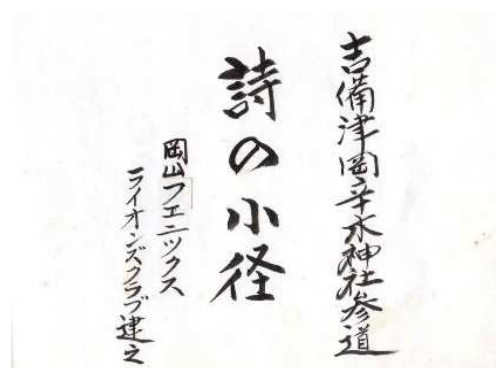 吉備津岡辛木神社参道
詩の小径
岡山フェニックス
ライオンズクラブ建之